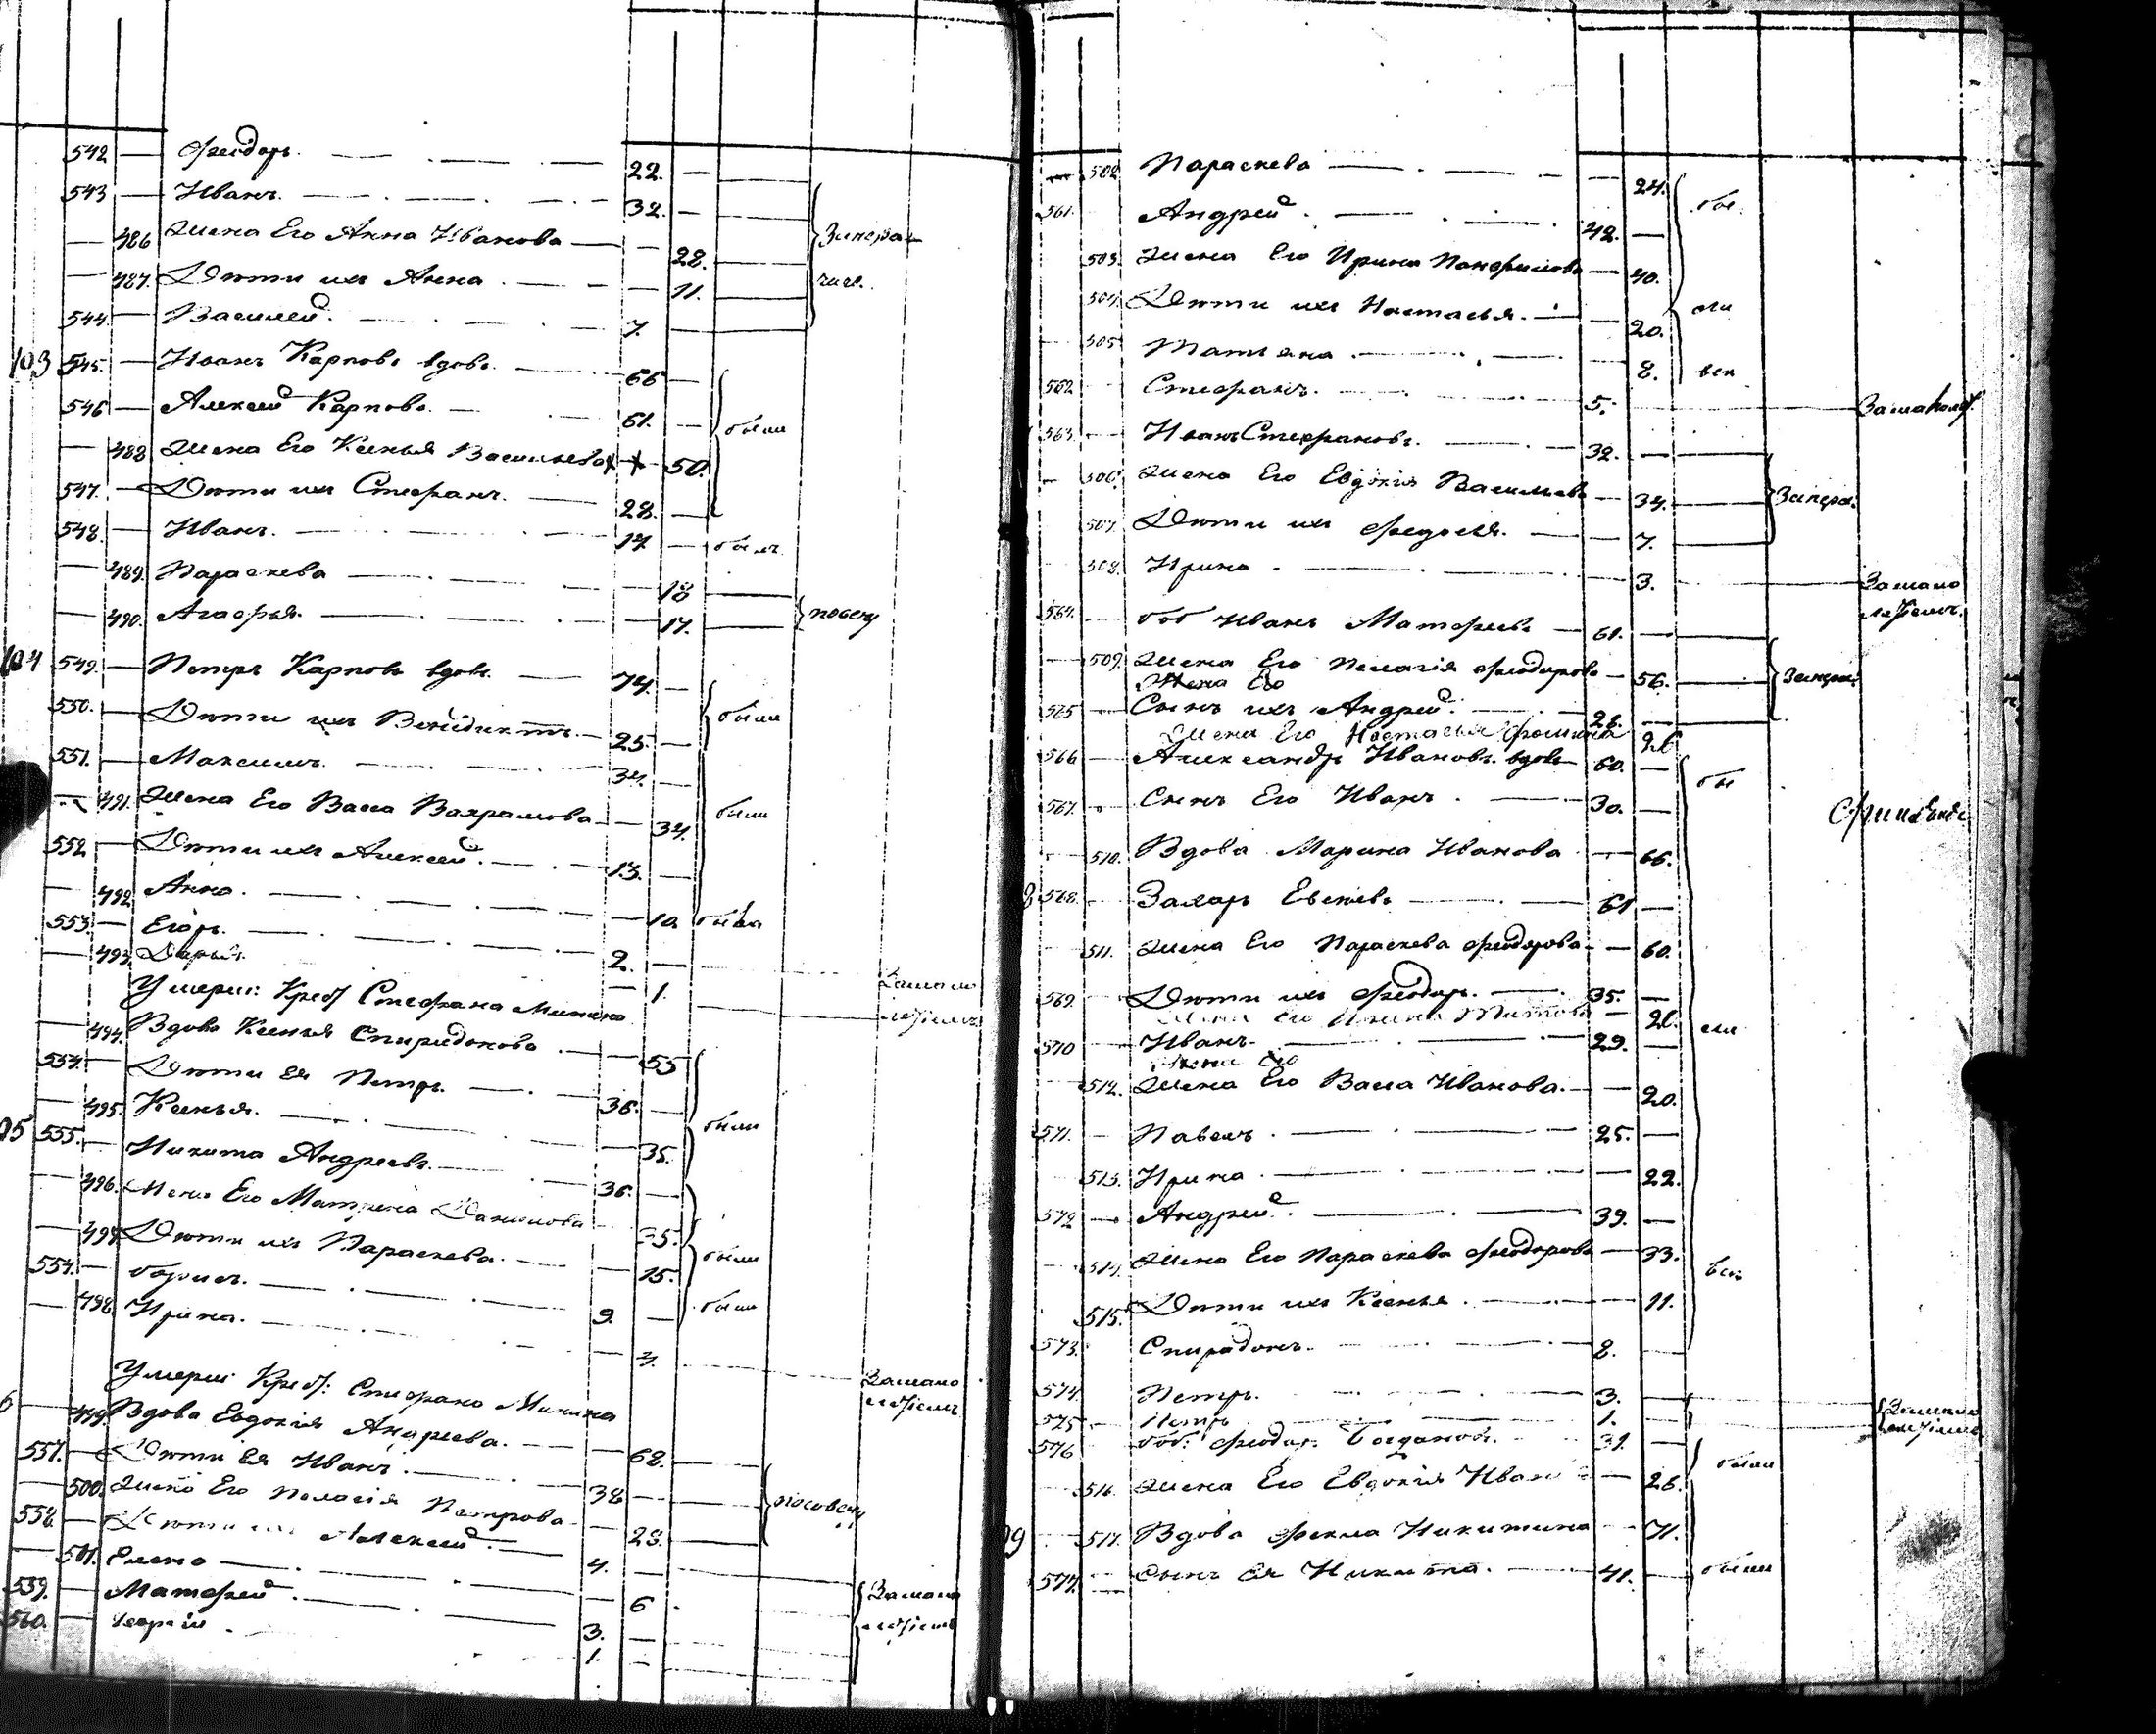 542 — Феодоръ. 22. —
543 — Иванъ. 32. —
— 486 Жена Его Анна Иванова — 28.
— 487. Дѣти ихъ Анна — 11.
544 — Василей. 7.
103 545. — Иванъ Карповъ вдовъ. 66 —
546 — Алексей Карповъ. 61. — были
— 488 Жена Его Ксенья Васильева — 50.
547. — Дѣти ихъ Стефанъ. 28. —
548. — Иванъ. 17 — былъ
— 489. Параскева — 18
— 490. Агафья — 17.
104 549. — Петръ Карповъ вдовъ. 74. —
550. — Дѣти ихъ Венідиктъ. 25. — были
551. — Максимъ. 34. —
— 491. Жена Его Васса Вахрамова — 34. были
552 — Дѣти ихъ Алексей. 13. —
— 492 Анна. — 10 была
553. — Егоръ. 2. —
— 493. Дарья. — 1.
Умерш: Креб Стефана Минина
— 494. Вдова Ксенья Спиридонова — 55
553. — Дѣти Ея Петръ. 36. —
— 495. Ксенья. — 35. были
105 555. — Никита Андреевъ. 36. —
— 496. Жена Его Матрена Данилова 35.
— 497 Дѣти ихъ Параскева. — 15. были
554. — Борисъ. 9. — были
— 498 Ирина. — 3. За мало
Умерш: Креб: Стефана Минина лѣтіемъ
6 — 499. Вдова Евдокія Андреева. — 68.
557. — Дѣти Ея Иванъ. 38 —
— 500. Жена Его Пелагія Петрова — 28.
558. — Дѣти ихъ Алексей. 4. —
— 501. Елена — 6
559. — Матфей 3. — За мало
560. — Георгій 1. — лѣтіемъ
502. Параскева — 24.
561. Андрей. 42. —
503. Жена Его Ирина Панфилова — 40.
504. Дѣти ихъ Настасья. — 20.
505 Татьяна — 8. вси
562. Стефанъ. 5.
563. Иванъ Стефановъ. 32. —
506. Жена Его Евдокія Васильева — 34.
507. Дѣти ихъ Федосья. — 7.
508. Ирина — 3. За мало
лѣтіемъ.
564. боб Иванъ Матфеевъ 61. —
509. Жена Его Пелагія Феодорова — 56.
Жена Его
565 — Сынъ ихъ Андрей. 28. —
Жена Его Настасья Фомина 26
566 — Александръ Ивановъ. вдовъ 60. —
567. Сынъ Его Иванъ. 30. —
510. Вдова Марина Иванова — 66.
568. Захаръ Евсеевъ 61 —
511. Жена Его Параскева Феодорова — 60.
569. Дѣти ихъ Феодоръ. 35. —
570 Иванъ 29. —
Жена Его
512. Жена Его Васса Иванова. — 20.
571. — Павелъ. 25. —
513. Ирина — 22.
572 — Андрей. 39. —
514. Жена Его Параскева Феодорова — 33.
515. Дѣти ихъ Ксенья. — 11.
573. Спиридонъ. 8. —
574. Петръ. 3. —
575 Петръ 1. —
576 боб: Феодоръ Богдановъ. 31. —
516. Жена Его Евдокія Иванова — 26. были
517. Вдова Фекла Никитина — 71.
577. Сынъ Ея Никита. 41. — были